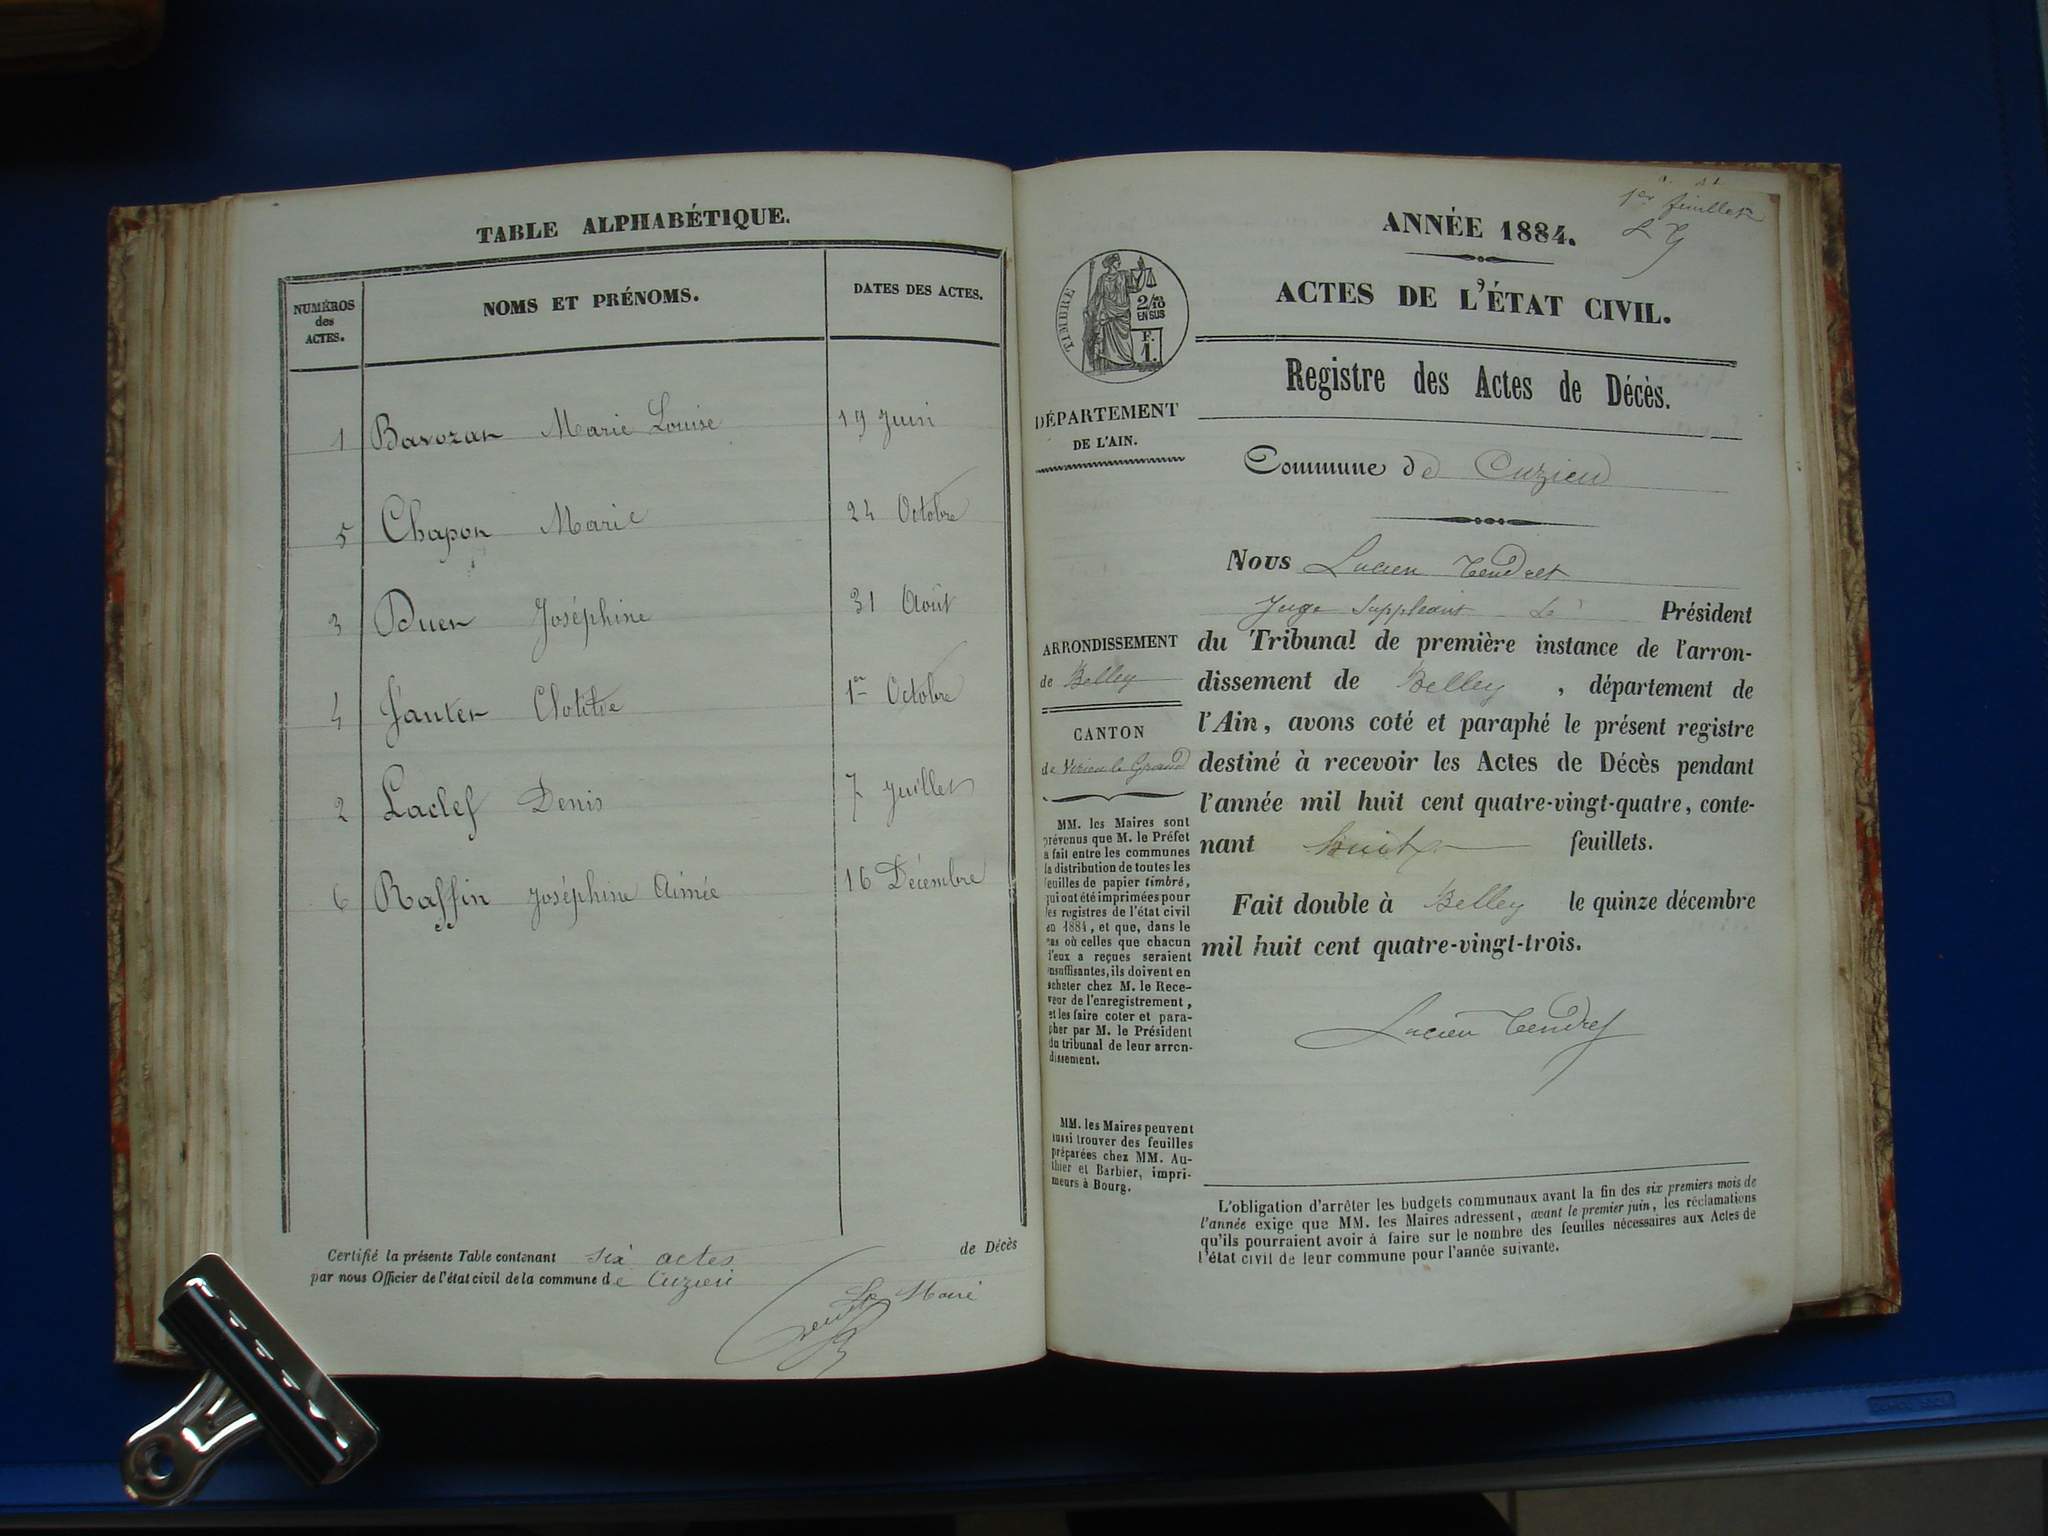 TABLE ALPHABÉTIQUE.
NUMÉROS
des
ACTES.
NOMS ET PRÉNOMS.
DATES DES ACTES.
1 Bavozan Marie Louise 19 Juin
5 Chapon Marie 24 Octobre
3 Joséphine 31 Août
4 Clotilde 1er Octobre
2 Laclef Denis 7 Juillet
6 Raffin Joséphine Aimée 16 Décembre
Certifié la présente Table contenant six actes de Décès
par nous Officier de l'état civil de la commune de Cuzieu
Le Maire
1er feuillet
L T
ANNÉE 1884.
ACTES DE L'ÉTAT CIVIL.
TIMBRE
2/10
EN SUS
F.
1.
Registre des Actes de Décès.
DÉPARTEMENT
DE L'AIN.
Commune de Cuzieu
Nous Lucien Tendret
Juge Suppléant Le Président
du Tribunal de première instance de l'arron-
dissement de Belley, département de
l'Ain, avons coté et paraphé le présent registre
destiné à recevoir les Actes de Décès pendant
l'année mil huit cent quatre-vingt-quatre, conte-
nant huit feuillets.
Fait double à Belley le quinze décembre
mil huit cent quatre-vingt-trois.
Lucien Tendret
ARRONDISSEMENT
de Belley
CANTON
de Virieu le Grand
MM. les Maires sont
prévenus que M. le Préfet
a fait entre les communes
la distribution de toutes les
feuilles de papier timbré,
qui ont été imprimées pour
les registres de l'état civil
en 1884, et que, dans le
cas où celles que chacun
d'eux a reçues seraient
insuffisantes, ils doivent en
acheter chez M. le Rece-
veur de l'enregistrement,
et les faire coter et para-
pher par M. le Président
du tribunal de leur arron-
dissement.
MM. les Maires peuvent
aussi trouver des feuilles
préparées chez MM. Au-
thier et Barbier, impri-
meurs à Bourg.
L'obligation d'arrêter les budgets communaux avant la fin des six premiers mois de
l'année exige que MM. les Maires adressent, avant le premier juin, les réclamations
qu'ils pourraient avoir à faire sur le nombre des feuilles nécessaires aux Actes de
l'état civil de leur commune pour l'année suivante.